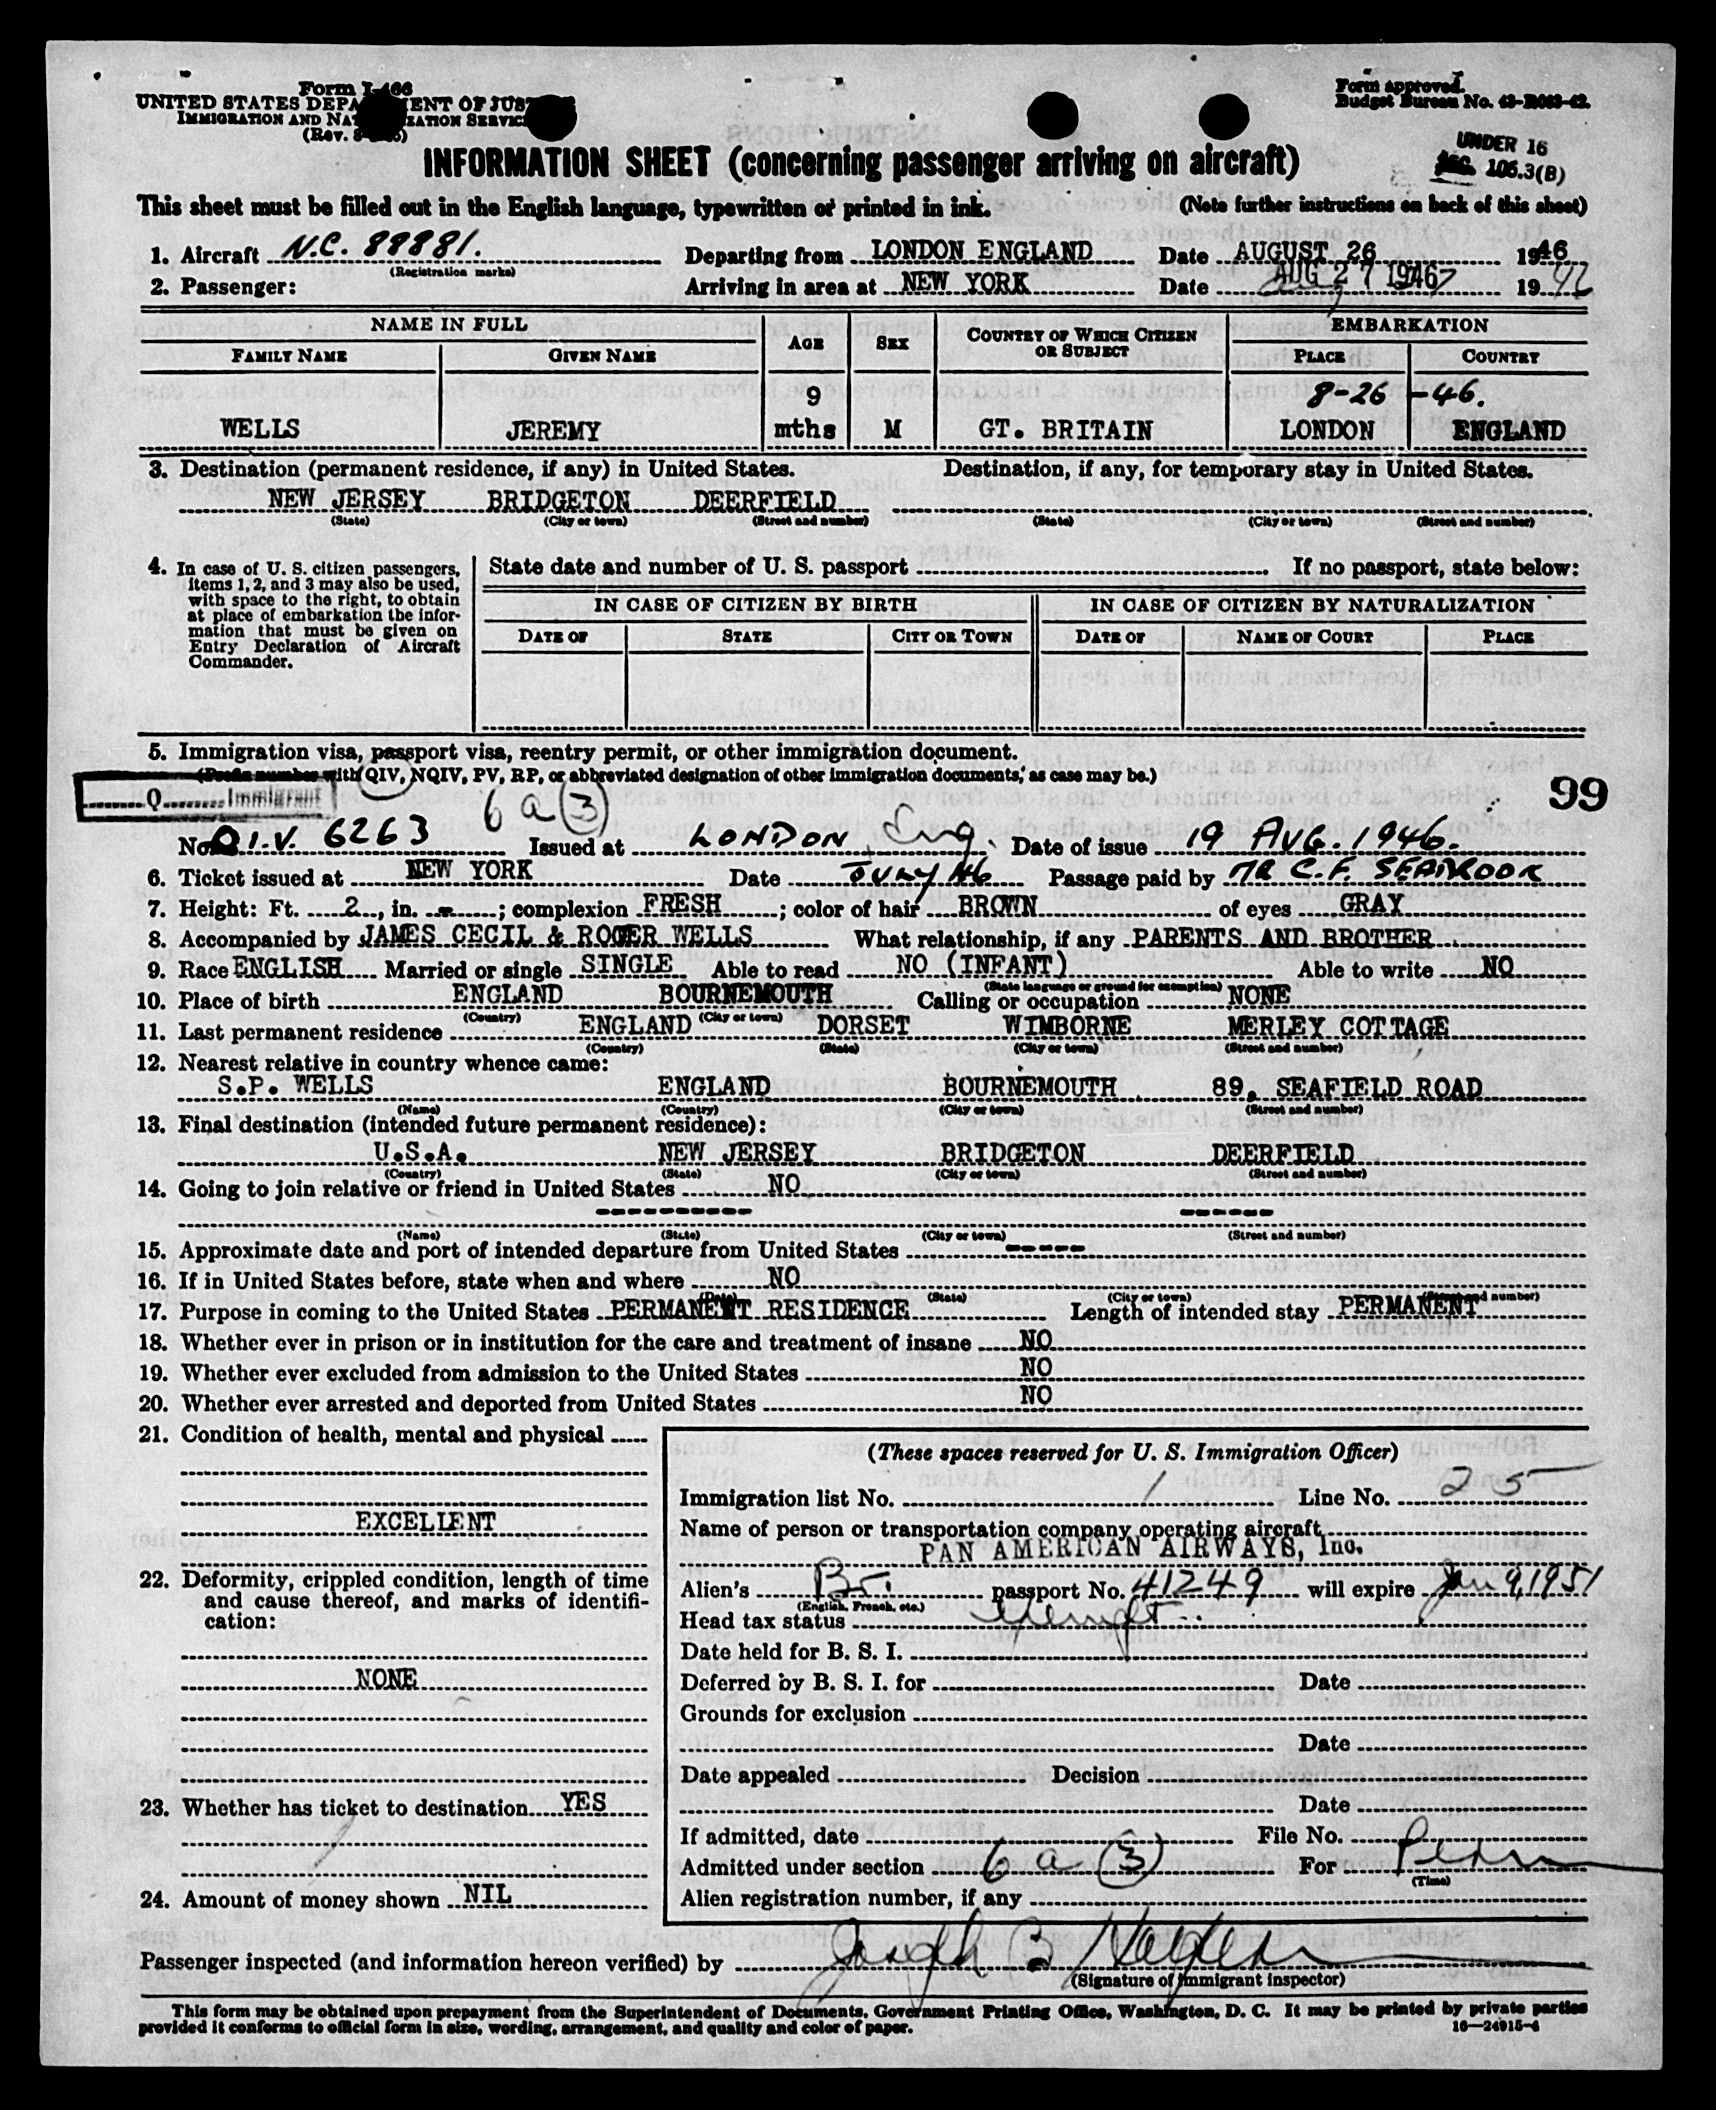 Form I-466
UNITED STATES DEPARTMENT OF JUSTICE
IMMIGRATION AND NATURALIZATION SERVICE
(Rev. 8
Form approved.
Budget Bureau No. 43-R083-42.
UNDER 16
SEC. 106.3(B)
INFORMATION SHEET (concerning passenger arriving on aircraft)
This sheet must be filled out in the English language, typewritten or printed in ink. (Note further instructions on back of this sheet)
1. Aircraft N.C. 88881. Departing from LONDON ENGLAND Date AUGUST 26 1946
(Registration marks)
2. Passenger: Arriving in area at NEW YORK Date AUG 27 1946 1946
NAME IN FULL AGE SEX COUNTRY OF WHICH CITIZEN OR SUBJECT EMBARKATION
FAMILY NAME GIVEN NAME PLACE COUNTRY
9 8-26-46.
WELLS JEREMY mths M GT. BRITAIN LONDON ENGLAND
3. Destination (permanent residence, if any) in United States. Destination, if any, for temporary stay in United States.
NEW JERSEY BRIDGETON DEERFIELD
(State) (City or town) (Street and number) (State) (City or town) (Street and number)
4. In case of U. S. citizen passengers, items 1, 2, and 3 may also be used, with space to the right, to obtain at place of embarkation the information that must be given on Entry Declaration of Aircraft Commander.
State date and number of U. S. passport If no passport, state below:
IN CASE OF CITIZEN BY BIRTH IN CASE OF CITIZEN BY NATURALIZATION
DATE OF STATE CITY OR TOWN DATE OF NAME OF COURT PLACE
5. Immigration visa, passport visa, reentry permit, or other immigration document.
(Prefix number with QIV, NQIV, PV, RP, or abbreviated designation of other immigration documents, as case may be.)
Q Immigrant 6a(3) 99
No. Q.I.V. 6263 Issued at LONDON, Eng. Date of issue 19 AUG. 1946.
6. Ticket issued at NEW YORK Date JULY 46 Passage paid by MR C.F. SEABROOK
7. Height: Ft. 2, in. -; complexion FRESH; color of hair BROWN of eyes GRAY
8. Accompanied by JAMES CECIL & ROGER WELLS What relationship, if any PARENTS AND BROTHER
9. Race ENGLISH Married or single SINGLE Able to read NO (INFANT) Able to write NO
(State language or ground for exemption)
10. Place of birth ENGLAND BOURNEMOUTH Calling or occupation NONE
(Country) (City or town)
11. Last permanent residence ENGLAND DORSET WIMBORNE MERLEY COTTAGE
(Country) (State) (City or town) (Street and number)
12. Nearest relative in country whence came:
S.P. WELLS ENGLAND BOURNEMOUTH 89, SEAFIELD ROAD
(Name) (Country) (City or town) (Street and number)
13. Final destination (intended future permanent residence):
U.S.A. NEW JERSEY BRIDGETON DEERFIELD
(Country) (State) (City or town) (Street and number)
14. Going to join relative or friend in United States NO
(Name) (State) (City or town) (Street and number)
15. Approximate date and port of intended departure from United States -----
16. If in United States before, state when and where NO
(Date) (State) (City or town) (Street and number)
17. Purpose in coming to the United States PERMANENT RESIDENCE Length of intended stay PERMANENT
18. Whether ever in prison or in institution for the care and treatment of insane NO
19. Whether ever excluded from admission to the United States NO
20. Whether ever arrested and deported from United States NO
21. Condition of health, mental and physical
EXCELLENT
22. Deformity, crippled condition, length of time and cause thereof, and marks of identification:
NONE
23. Whether has ticket to destination YES
24. Amount of money shown NIL
(These spaces reserved for U. S. Immigration Officer)
Immigration list No. 1 Line No. 25
Name of person or transportation company operating aircraft
PAN AMERICAN AIRWAYS, Inc.
Alien's Br. passport No. 41249 will expire Jan 9, 1951
(English, French, etc.)
Head tax status Exempt
Date held for B. S. I.
Deferred by B. S. I. for Date
Grounds for exclusion
Date
Date appealed Decision
Date
If admitted, date File No.
Admitted under section 6a(3) For Perm
(Time)
Alien registration number, if any
Passenger inspected (and information hereon verified) by Joseph B
(Signature of immigrant inspector)
This form may be obtained upon prepayment from the Superintendent of Documents, Government Printing Office, Washington, D. C. It may be printed by private parties
provided it conforms to official form in size, wording, arrangement, and quality and color of paper. 16—24915-4